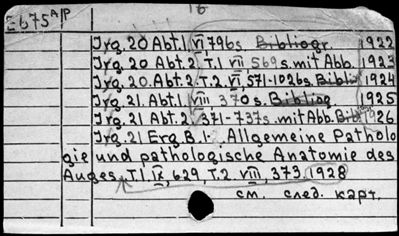 E675 A/P 16
Jrg. 20 Abt. 1. VI, 796 s. Bibliogr. 1922
Jrg. 20 Abt. 2. T. 1 VII, 569 s. mit Abb. 1923
Jrg. 20. Abt. 2. T. 2. VII, 571-1026 s. Biblio 1924
Jrg. 21. Abt. 1. VIII 370 s. Bibliog. 1925
Jrg. 21 Abt. 2. 371-737 s. mit Abb. Bibl 1926
Jrg. 21 Erg. B. 1. Allgemeine Patholo
gie und pathologische Anatomie des
Auges. T. 1. IX, 629, T. 2. VIII, 373. 1928
см. след. карт.